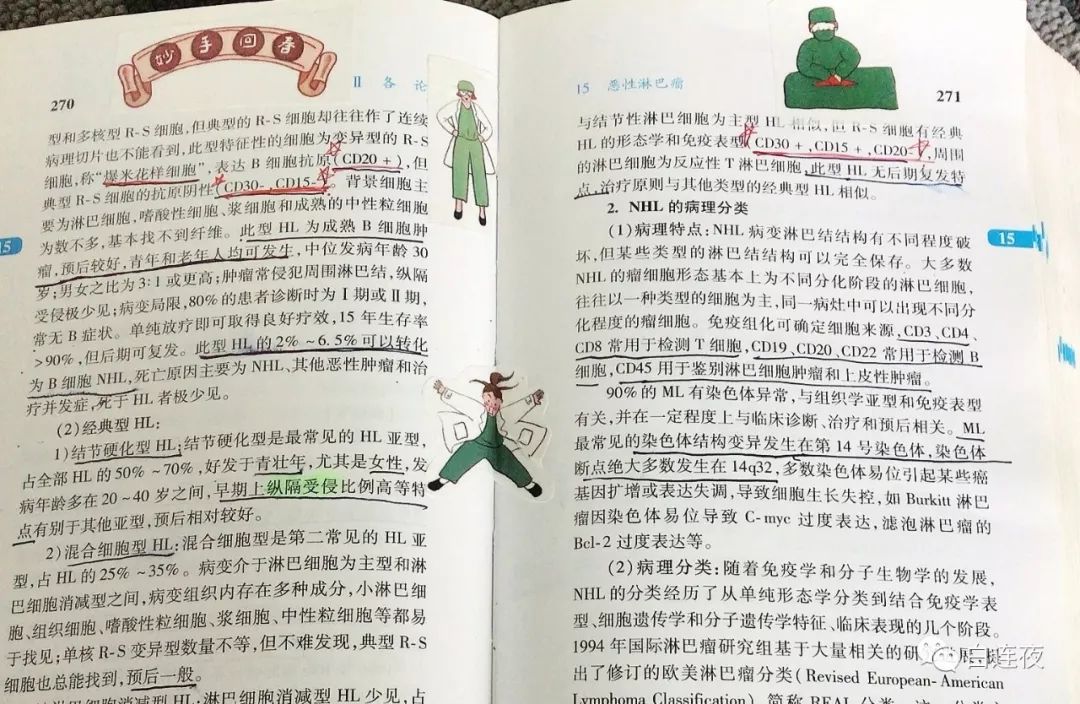 妙手回春
270
Ⅱ 各 论
型和多核型 R-S 细胞,但典型的 R-S 细胞却往往作了连续
病理切片也不能看到,此型特征性的细胞为变异型的 R-S
细胞,称“爆米花样细胞”,表达 B 细胞抗原(CD20 +),但
典型 R-S 细胞的抗原阴性(CD30-,CD15-)。背景细胞主
要为淋巴细胞,嗜酸性细胞、浆细胞和成熟的中性粒细胞
为数不多,基本找不到纤维。此型 HL 为成熟 B 细胞肿
瘤,预后较好,青年和老年人均可发生,中位发病年龄 30
岁;男女之比为 3∶1 或更高;肿瘤常侵犯周围淋巴结,纵隔
受侵极少见;病变局限,80% 的患者诊断时为 Ⅰ 期或 Ⅱ 期,
常无 B 症状。单纯放疗即可取得良好疗效,15 年生存率
>90%,但后期可复发。此型 HL 的 2% ~6.5% 可以转化
为 B 细胞 NHL,死亡原因主要为 NHL、其他恶性肿瘤和治
疗并发症,死于 HL 者极少见。
(2)经典型 HL:
1)结节硬化型 HL:结节硬化型是最常见的 HL 亚型,
占全部 HL 的 50% ~70%,好发于青壮年,尤其是女性,发
病年龄多在 20~40 岁之间,早期上纵隔受侵比例高等特
点有别于其他亚型,预后相对较好。
2)混合细胞型 HL:混合细胞型是第二常见的 HL 亚
型,占 HL 的 25% ~35%。病变介于淋巴细胞为主型和淋
巴细胞消减型之间,病变组织内存在多种成分,小淋巴细
胞、组织细胞、嗜酸性粒细胞、浆细胞、中性粒细胞等都易
于找见;单核 R-S 变异型数量不等,但不难发现,典型 R-S
细胞也总能找到,预后一般。
淋巴细胞消减型 HL:淋巴细胞消减型 HL 少见,占
15
15 恶性淋巴瘤
271
与结节性淋巴细胞为主型 HL 相似,但 R-S 细胞有经典
HL 的形态学和免疫表型(CD30 +,CD15 +,CD20-),周围
的淋巴细胞为反应性 T 淋巴细胞,此型 HL 无后期复发特
点,治疗原则与其他类型的经典型 HL 相似。
2. NHL 的病理分类
(1)病理特点:NHL 病变淋巴结结构有不同程度破
坏,但某些类型的淋巴结结构可以完全保存。大多数
NHL 的瘤细胞形态基本上为不同分化阶段的淋巴细胞,
往往以一种类型的细胞为主,同一病灶中可以出现不同分
化程度的瘤细胞。免疫组化可确定细胞来源,CD3、CD4、
CD8 常用于检测 T 细胞,CD19、CD20、CD22 常用于检测 B
细胞,CD45 用于鉴别淋巴细胞肿瘤和上皮性肿瘤。
90% 的 ML 有染色体异常,与组织学亚型和免疫表型
有关,并在一定程度上与临床诊断、治疗和预后相关。ML
最常见的染色体结构变异发生在第 14 号染色体,染色体
断点绝大多数发生在 14q32,多数染色体易位引起某些癌
基因扩增或表达失调,导致细胞生长失控,如 Burkitt 淋巴
瘤因染色体易位导致 C-myc 过度表达,滤泡淋巴瘤的
Bcl-2 过度表达等。
(2)病理分类:随着免疫学和分子生物学的发展,
NHL 的分类经历了从单纯形态学分类到结合免疫学表
型、细胞遗传学和分子遗传学特征、临床表现的几个阶段。
1994 年国际淋巴瘤研究组基于大量相关的研 展
出了修订的欧美淋巴瘤分类(Revised European-American
Lymphoma Classification),简称 REAL 分类
15
白连夜